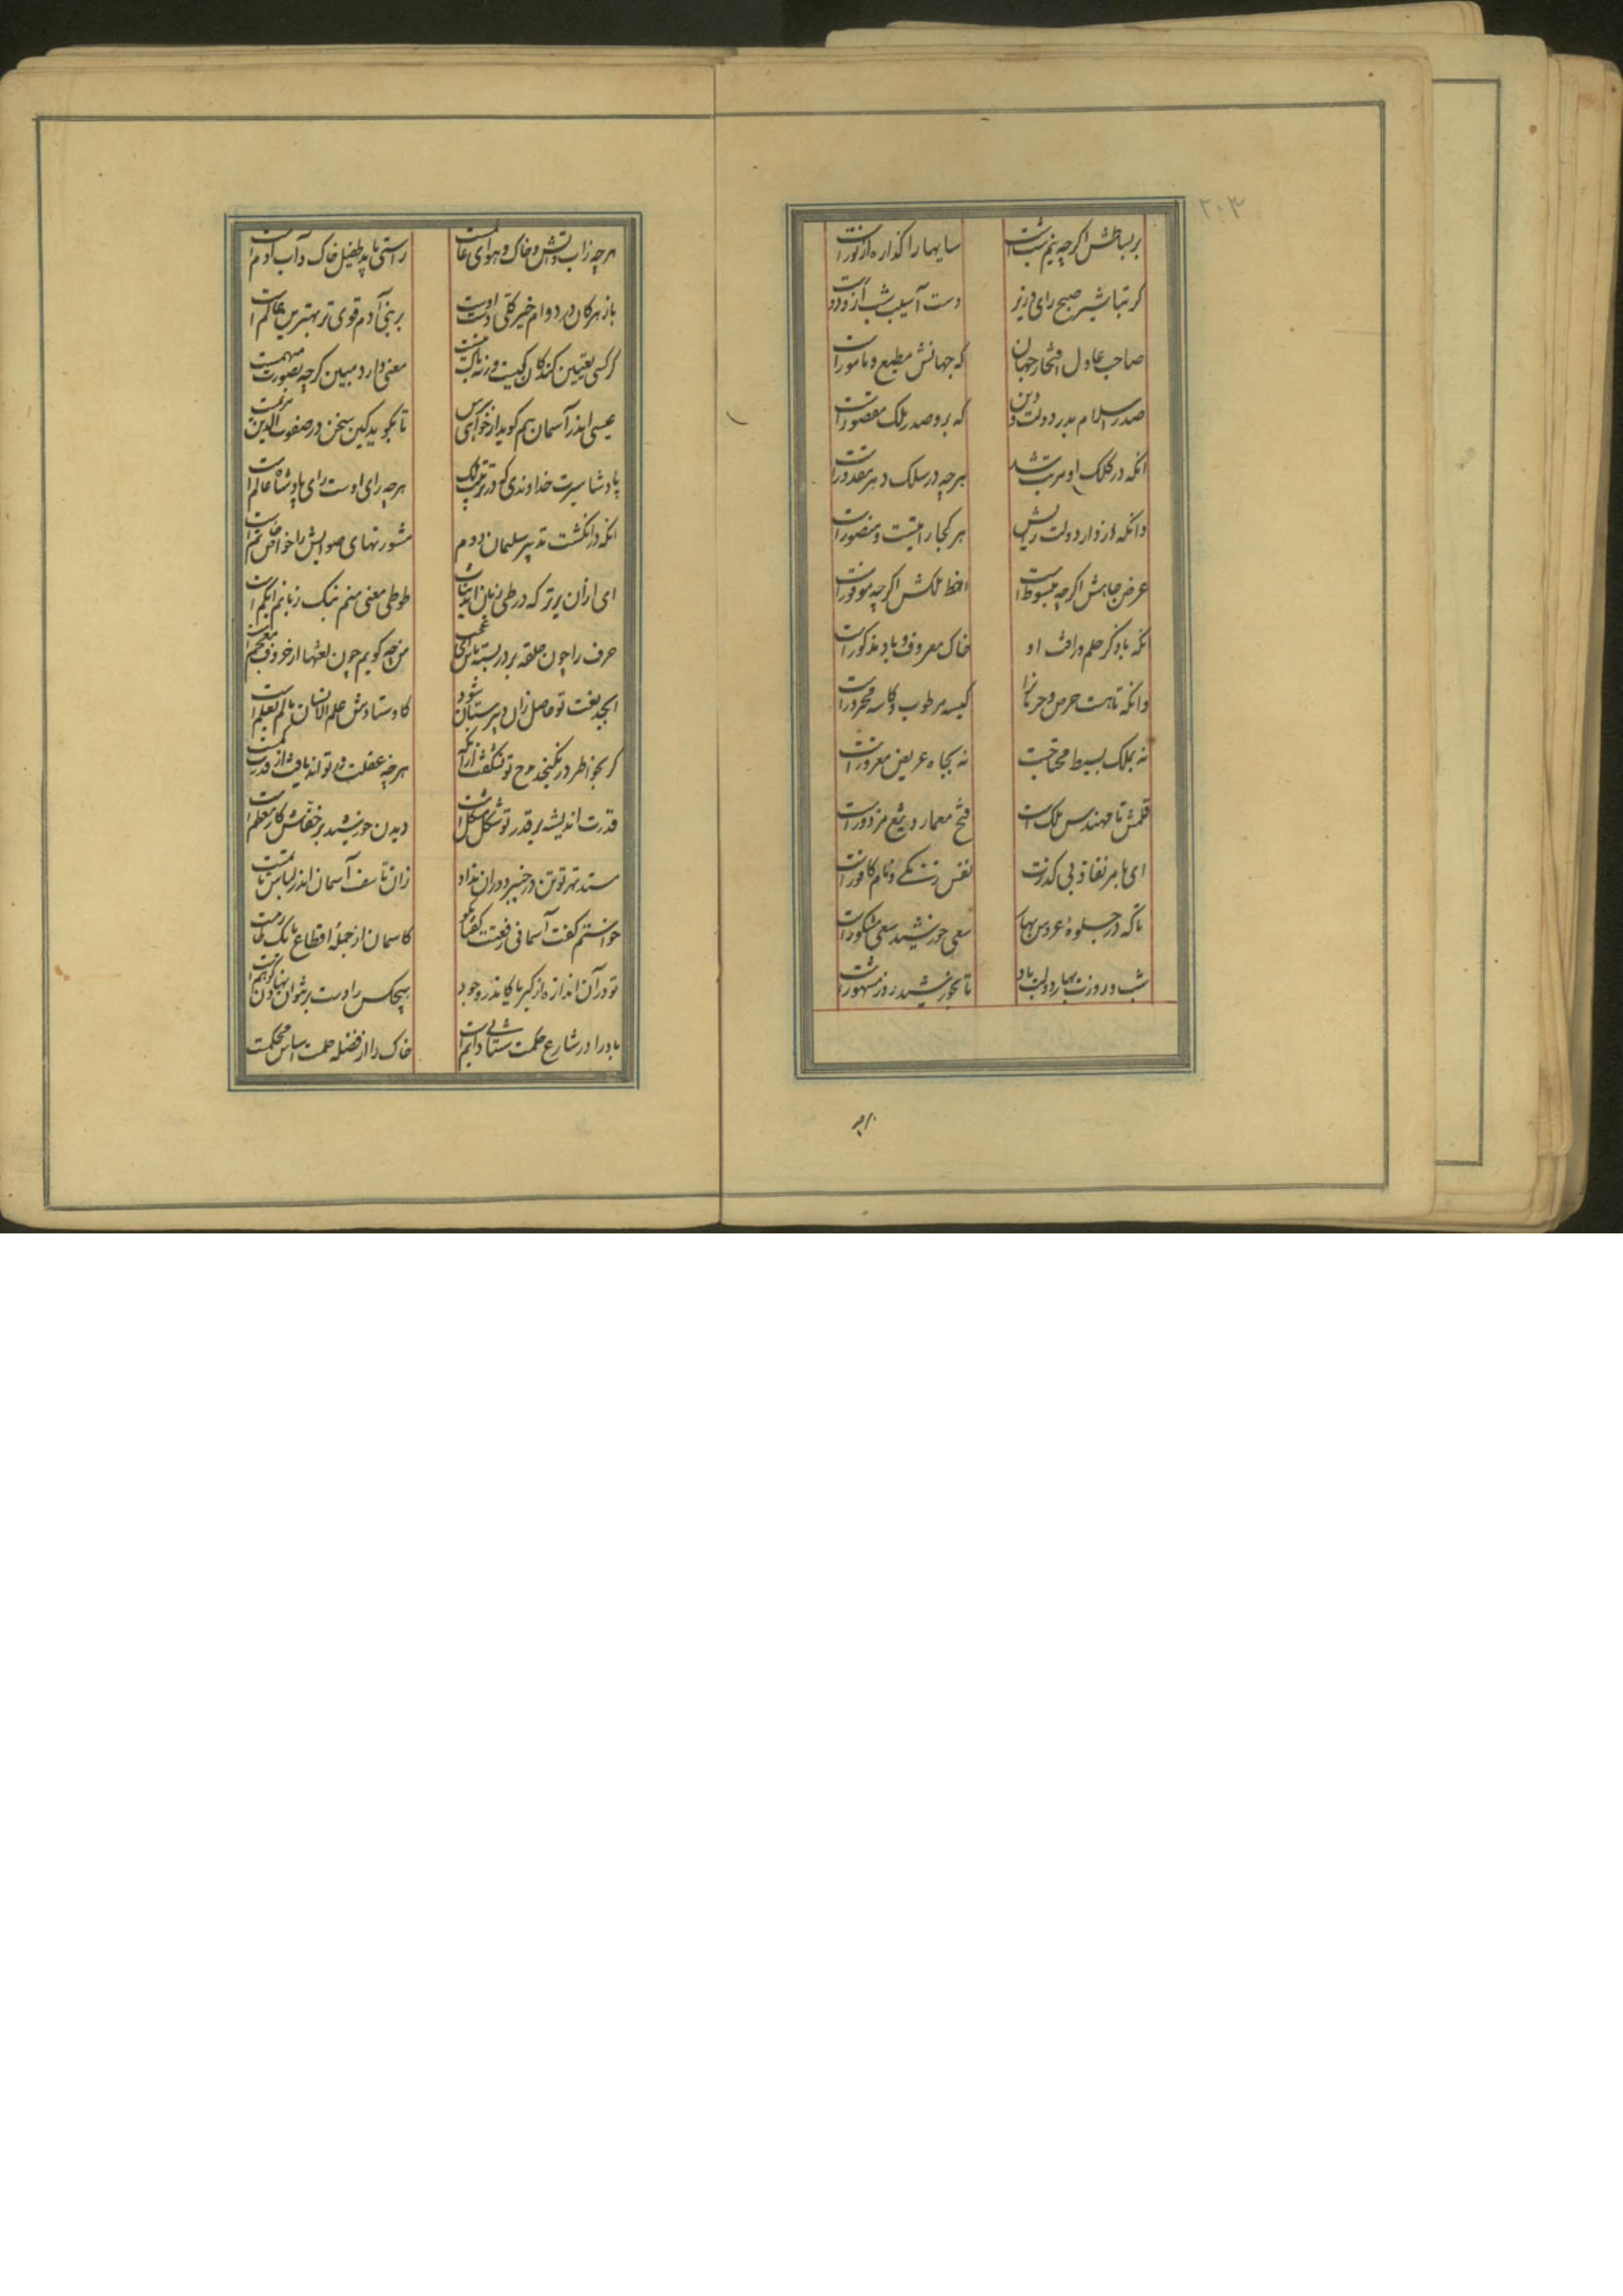 ۲۰۳
بر بساطش اگرچه نیم شب است سایها را گذاره از نور است
کر تباشیر صبح رای وزیر دست آسیب شب ازو دور است
صاحب عادل افتخار جهان که جهانش مطیع و مامور است
صدر اسلام بدر دولت و دین که برو صدر ملک مقصور است
انکه در کلک او مرتب شد هرچه در سلک دهر مقدور است
وانکه از وار دولت هر کجا رایتیست منصور است
عرض جاهش اگرچه مبسوط است ملکش اگرچه موفور است
انکه با ذکر حلم و رافت او خاک معروف و باد مذکور است
وانکه تا هست حرص و حرمانرا کیسه مرطوب و کاسه محرور است
نه بملک بسیط محتاجست نه بجاه عریض مغرور است
قلمش تا مهندس ملک است فتح معمار و تیغ مزدور است
ای بامر نفاذ بی کدرت نفس زنگی و نام کافور است
تا که در جلوهٔ عروس بهار سعی خورشید سعی مشکور است
شب و روزت بهار دولت باد تا بخورشید روز مشهور است
هرچه زاب و آتش و خاک و هوای عالمست راستی باید طفیل خاک و آب آدم است
باز هرکان در دوام خیر کلی اوست بر بنی آدم قوی تر بهترین عالم است
کر کسی تعیین کند کان کیست ورنه باک نیست معنی دارد مبین کرچه بصورت مبهمست
عیسی اندر آسمان هم گوید ار خواهی تا بگوید کین سخن در صفوت الدین مریمست
پادشا سیرت خداوندی که در ترتیب ملک هرچه رای اوست رای پادشاه عالم است
انکه در انگشت تدبیر سلیمان دوم مشورتهای صوابش را خواص خاتم است
ای ازان برتر که در طی زبان آید ثنات طوطی معنی منم نیک زبانم ابکم است
حرف را چون حلقه بر در بسته من چه گویم چون لغتها از حروف معجم است
ابجد نعت تو حاصل زان دبیرستان شود کاوستادش علم الانسان مالم یعلم است
کر بخواطر در نگنجد مدح تو نشگفت ازانکه هرچه عقلت در تواند یافت از قدرت کمست
قدرت اندیشه بر قدر تو شکل مشکل است دیدن خورشید بر خفاش کار معظم است
مسند تهر توتن در خیبر دوران نداد زان تاسف آسمان اندر لباس ماتمست
خواستم گفت آسمانی رفعتت گفتا مگو کاسمان از جملهٔ اقطاع ما یک طارمست
تو در آن اندازه از کبریا کاندر وجود هیچکس را دست برنتوان نهادن کو همست
باد را در شارع حکمت شتابی دائم است خاک را از فضله حلمت اساس محکمست